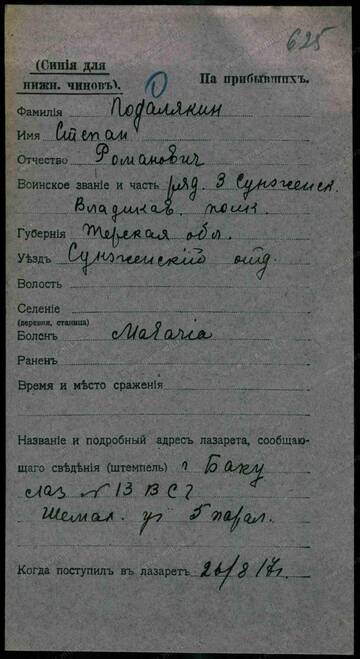 625
(Синія для
нижн. чиновъ).
На прибывшихъ.
Фамилія Подалякин
Имя Степан
Отчество Романович
Воинское званіе и часть ряд. 3 Сунженск.
Владикав. полк.
Губернія Терская обл.
Уѣздъ Сунженскій отд.
Волость
Селеніе
(деревня, станица)
Боленъ Малярія
Раненъ
Время и мѣсто сраженія
Названіе и подробный адресъ лазарета, сообщаю-
щаго свѣдѣнія (штемпель) г Баку
лаз № 13 ВСГ
Шемал. уг 5 парал.
Когда поступилъ въ лазаретъ 26/8 17г.